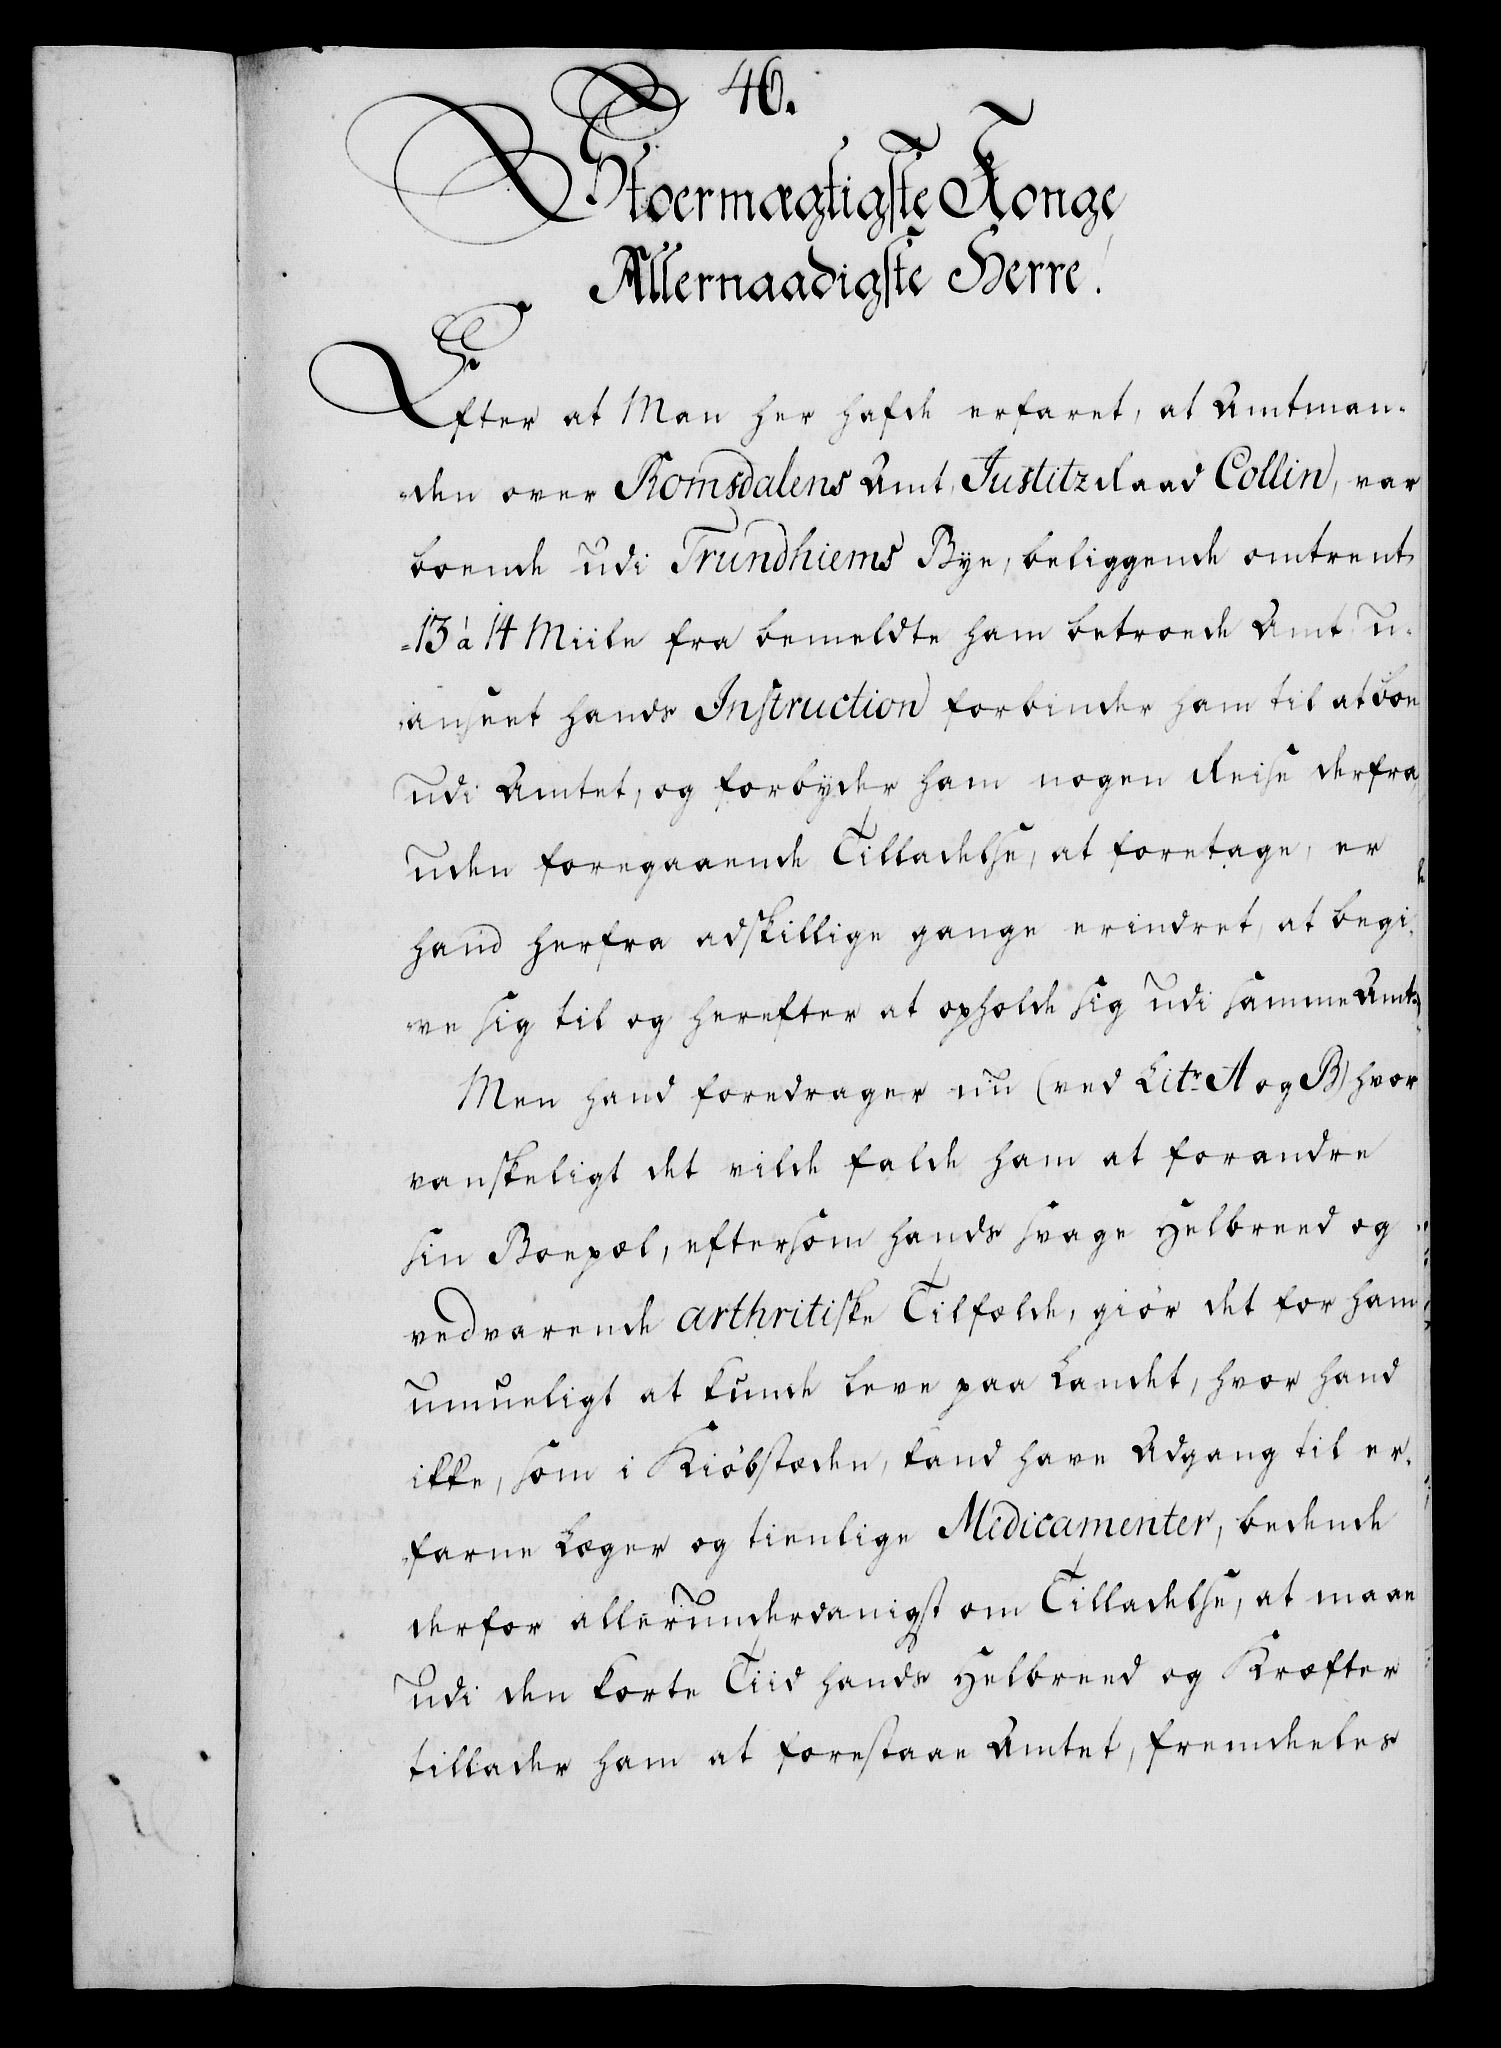 46.
Stoermægtigste Konge
Allernaadigste Herre!
Efter at Man her hafde erfaret, at Amtman-
den over Romsdalens Amt, Justitz Raad Collin, var
boende udi Trundhiems Bye, beliggende omtrent
13 à 14 Miile fra bemeldte ham betroede Amt u-
anseet hands Instruction forbinder ham til at boe
udi Amtet, og forbyder ham nogen Reise derfra,
uden foregaaende Tilladelse, at foretage, er
hand herfra adskillige gange erindret, at begi-
ve sig til og herefter at opholde sig udi samme Amt.
Men hand foredrager nu (ved Litr. A og B) hvor
vanskeligt det vilde falde ham at forandre
sin Boepæl, eftersom hands svage Helbreed og
vedvarende arthritiske Tilfælde, giör det for ham
umueligt at kunde leve paa Landet, hvor hand
ikke, som i Kiöbstæden, kand have Adgang til er-
farne Læger og tienlige Medicamenter, bedende
derfor allerunderdanigst om Tilladelse, at maae
udi den korte Tiid hands Helbreed og Kræfter
tillader ham at forestaae Amtet, fremdeeles